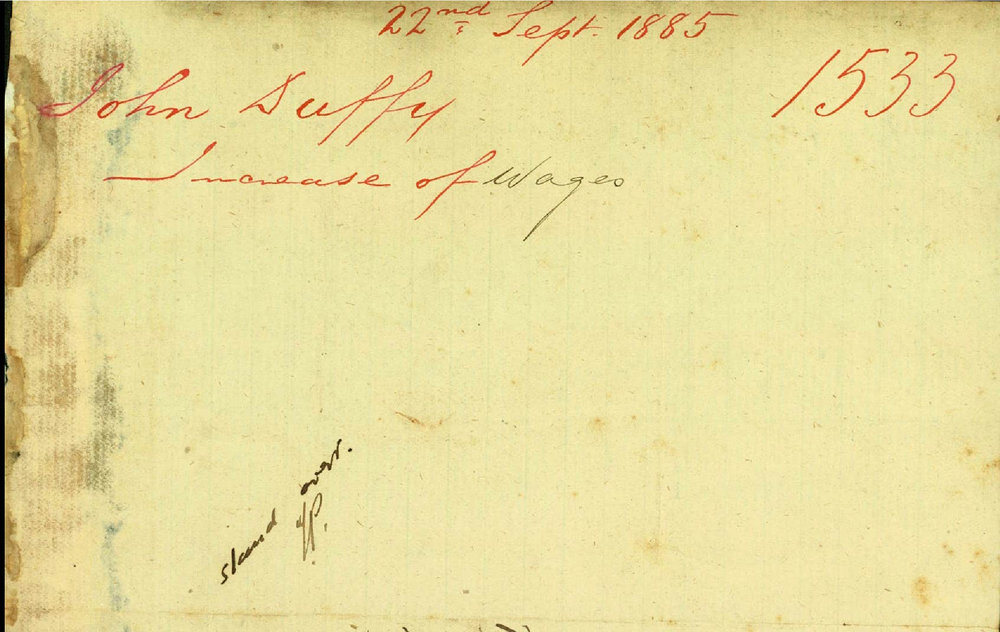 22nd Sept. 1885
John Duffy 1533
Increase of Wages
stand over.